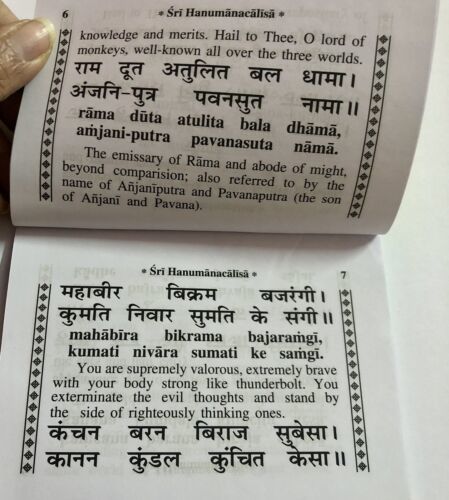 6 * Śrī Hanumānacālīsā *
knowledge and merits. Hail to Thee, O lord of
monkeys, well-known all over the three worlds.
राम दूत अतुलित बल धामा।
अंजनि-पुत्र पवनसुत नामा॥
rāma dūta atulita bala dhāmā,
aṁjani-putra pavanasuta nāmā.
The emissary of Rāma and abode of might,
beyond comparision; also referred to by the
name of Añjanīputra and Pavanaputra (the son
of Añjanī and Pavana).
* Śrī Hanumānacālīsā * 7
महाबीर बिक्रम बजरंगी।
कुमति निवार सुमति के संगी॥
mahābīra bikrama bajaraṁgī,
kumati nivāra sumati ke saṁgī.
You are supremely valorous, extremely brave
with your body strong like thunderbolt. You
exterminate the evil thoughts and stand by
the side of righteously thinking ones.
कंचन बरन बिराज सुबेसा।
कानन कुंडल कुंचित केसा॥